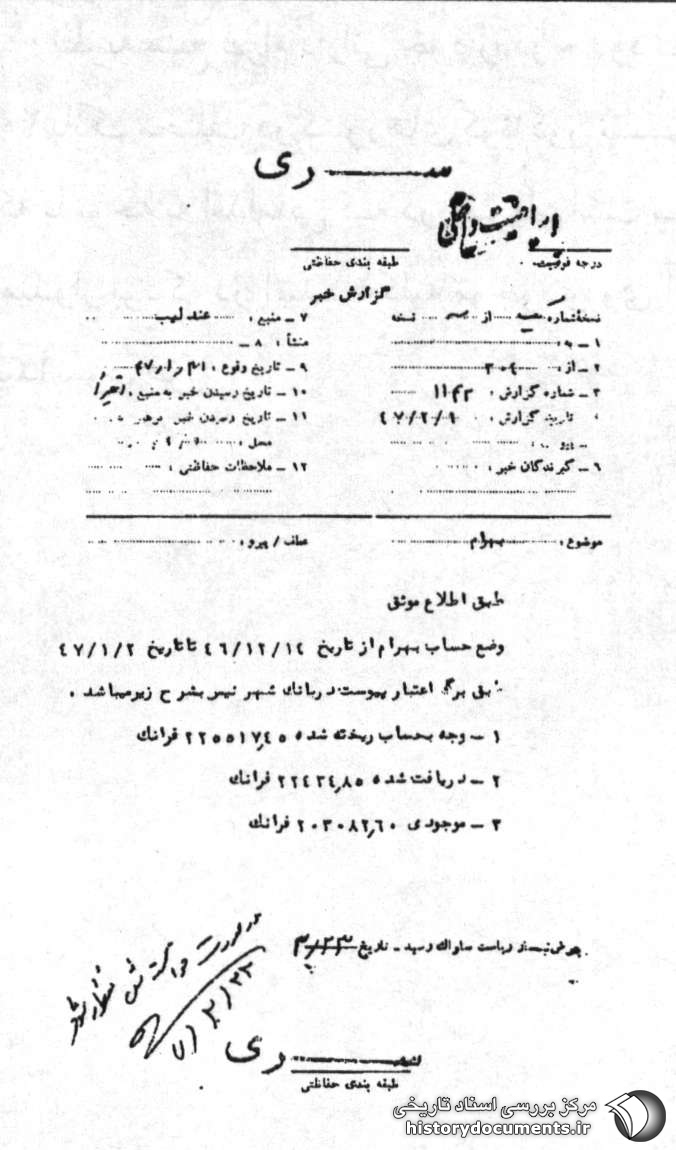 سری
درجه فوریت طبقه بندی حفاظتی
گزارش خبر
نسخه شماره سه از سه نسخه ۷ ـ منبع : عندلیب
۱ ـ به : ۸ ـ منشأ :
۲ ـ از : ۳۰۶ ۹ ـ تاریخ وقوع :
۳ ـ شماره گزارش : ۱۱۴۳ ۱۰ ـ تاریخ رسیدن خبر به منبع : اخیرا
تاریخ گزارش : ۴۷/۲/۹ ۱۱ ـ تاریخ رسیدن خبر
محل :
۶ ـ گیرندگان خبر : ۱۲ ـ ملاحظات حفاظتی :
موضوع : بهرام عطف / پیرو :
طبق اطلاع موثق
وضع حساب بهرام از تاریخ ۴۶/۱۲/۱۴ تا تاریخ ۴۷/۱/۲
طبق برگ اعتبار پیوست در بانک شهر نیس بشرح زیر میباشد .
۱ ـ وجه بحساب ریخته شده ۲۲۵۵۱۷٫۴۵ فرانک
۲ ـ دریافت شده ۲۲۴۳۴٫۸۵ فرانک
۳ ـ موجودی ۲۰۳۰۸۲٫۶۰ فرانک
بعرض تیمسار ریاست ساواک رسید ـ تاریخ
سری
طبقه بندی حفاظتی
مرکز بررسی اسناد تاریخی
historydocuments.ir